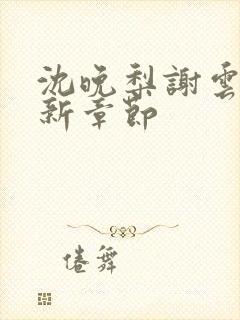 沈晚梨謝雲
新章節
倦舞